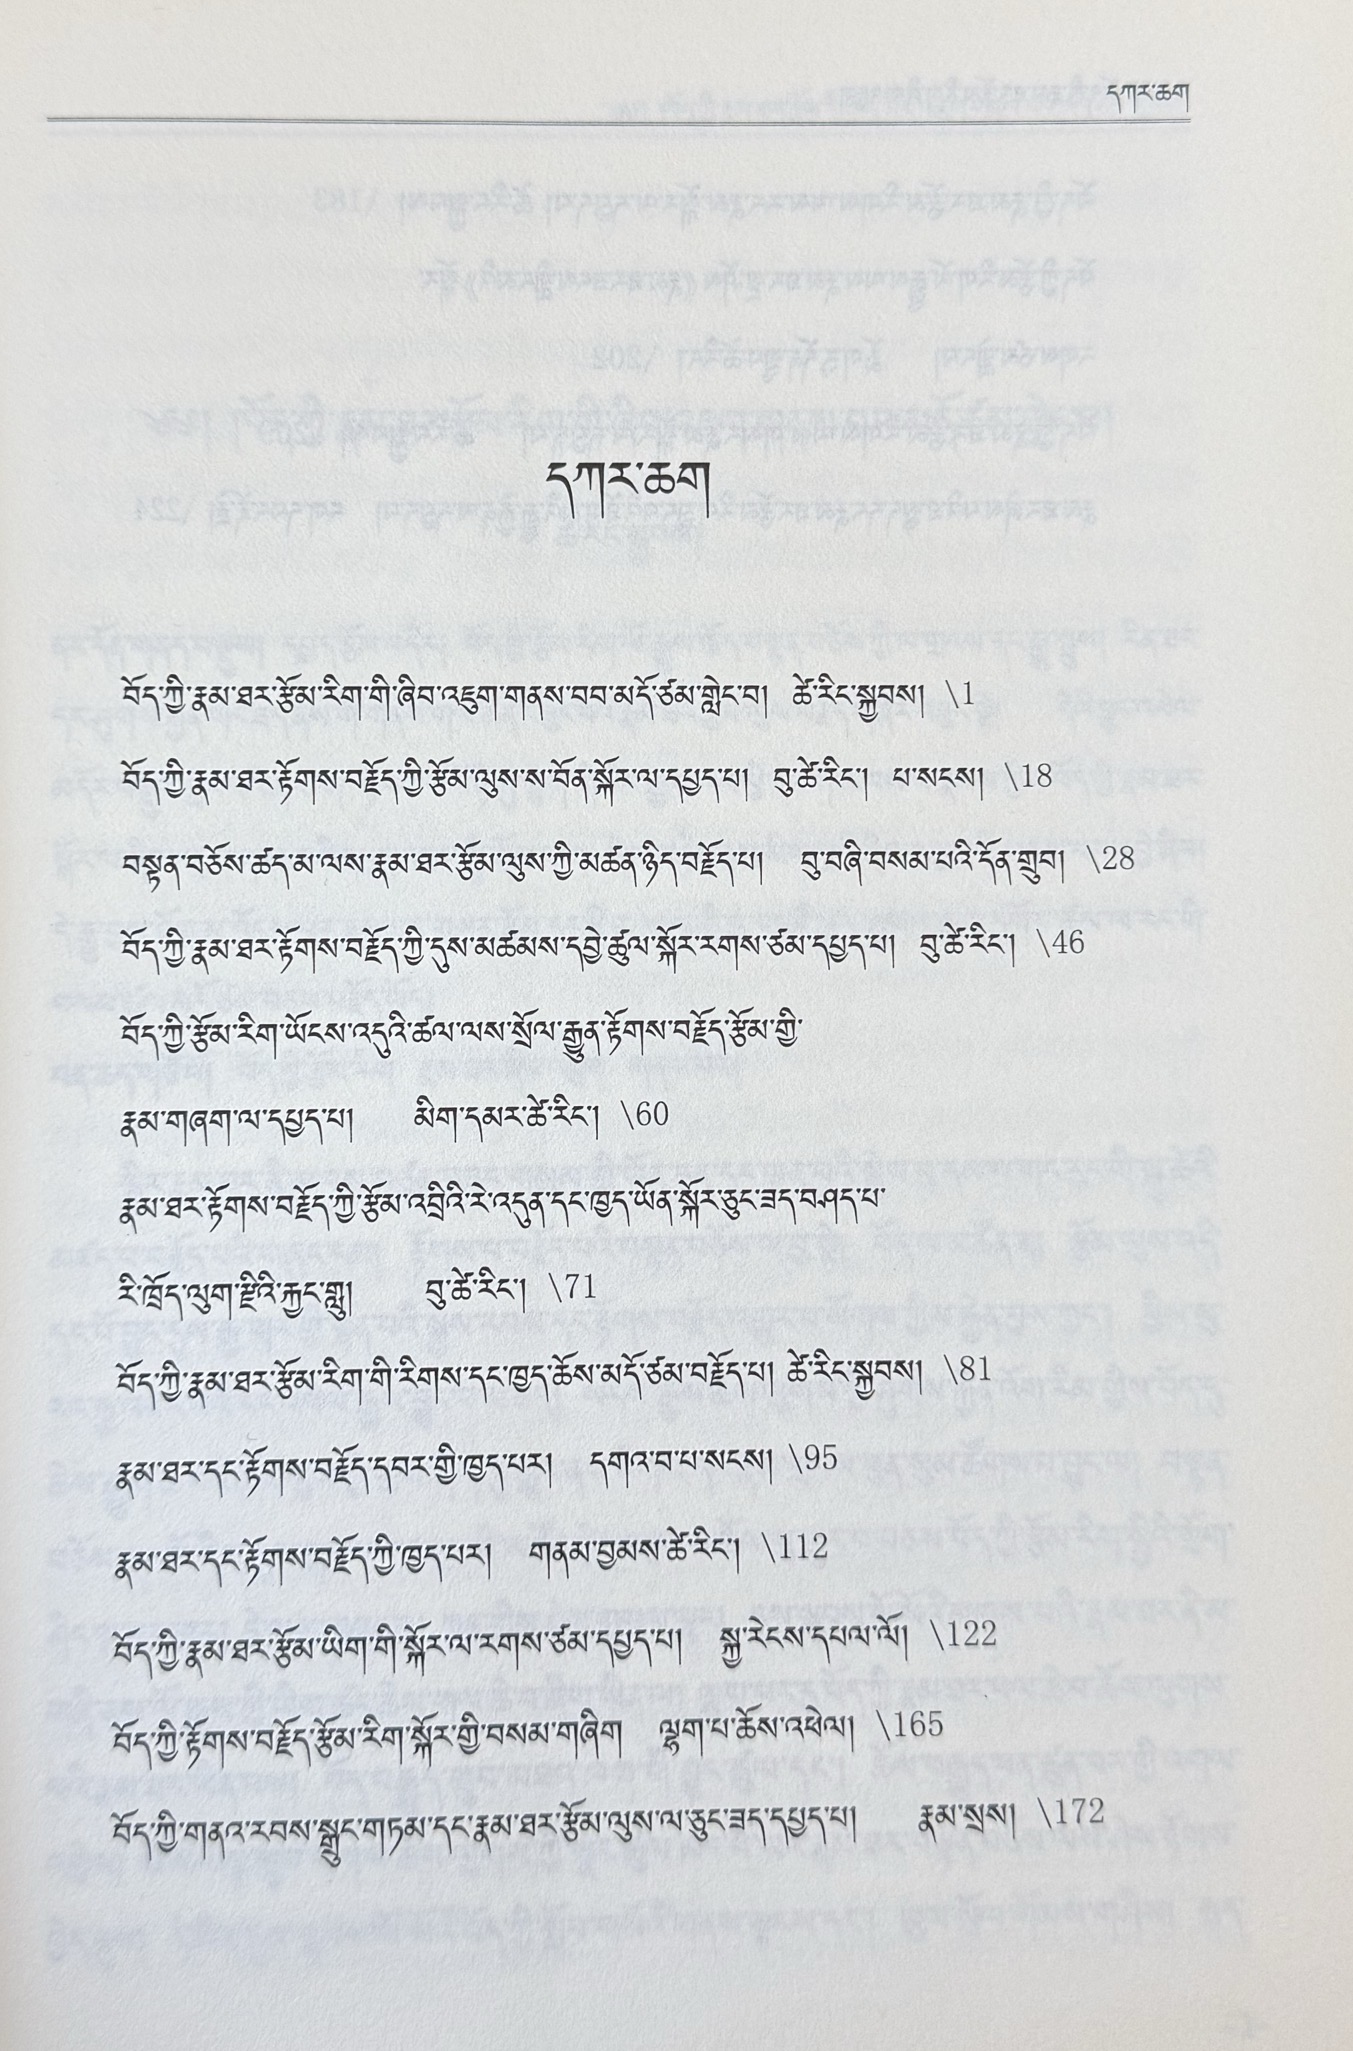 དཀར་ཆག
དཀར་ཆག
བོད་ཀྱི་རྣམ་ཐར་རྩོམ་རིག་གི་ཞིབ་འཇུག་གནས་བབ་མདོ་ཙམ་གླེང་བ། ཚེ་རིང་སྐྱབས། \1
བོད་ཀྱི་རྣམ་ཐར་རྟོགས་བརྗོད་ཀྱི་རྩོམ་ལུས་ས་བོན་སྐོར་ལ་དཔྱད་པ། བུ་ཚེ་རིང་། པ་སངས། \18
བསྟན་བཅོས་ཚད་མ་ལས་རྣམ་ཐར་རྩོམ་ལུས་ཀྱི་མཚན་ཉིད་བརྗོད་པ། བུ་བཞི་བསམ་པའི་དོན་གྲུབ། \28
བོད་ཀྱི་རྣམ་ཐར་རྟོགས་བརྗོད་ཀྱི་དུས་མཚམས་དབྱེ་ཚུལ་སྐོར་རགས་ཙམ་དཔྱད་པ། བུ་ཚེ་རིང་། \46
བོད་ཀྱི་རྩོམ་རིག་ཡོངས་འདུའི་ཚལ་ལས་སྲོལ་རྒྱུན་རྟོགས་བརྗོད་རྩོམ་གྱི་
རྣམ་གཞག་ལ་དཔྱད་པ། མིག་དམར་ཚེ་རིང་། \60
རྣམ་ཐར་རྟོགས་བརྗོད་ཀྱི་རྩོམ་འབྲིའི་རེ་འདུན་དང་ཁྱད་ཡོན་སྐོར་ཅུང་ཟད་བཤད་པ་
རི་ཁྲོད་ལུག་རྫིའི་རྐྱང་གླུ། བུ་ཚེ་རིང་། \71
བོད་ཀྱི་རྣམ་ཐར་རྩོམ་རིག་གི་རིགས་དང་ཁྱད་ཆོས་མདོ་ཙམ་བརྗོད་པ། ཚེ་རིང་སྐྱབས། \81
རྣམ་ཐར་དང་རྟོགས་བརྗོད་དབར་གྱི་ཁྱད་པར། དགའ་བ་པ་སངས། \95
རྣམ་ཐར་དང་རྟོགས་བརྗོད་ཀྱི་ཁྱད་པར། གནམ་བྱམས་ཚེ་རིང་། \112
བོད་ཀྱི་རྣམ་ཐར་རྩོམ་ཡིག་གི་སྐོར་ལ་རགས་ཙམ་དཔྱད་པ། སྐྱ་རེངས་དཔལ་ལོ། \122
བོད་ཀྱི་རྟོགས་བརྗོད་རྩོམ་རིག་སྐོར་གྱི་བསམ་གཞིག ལྷག་པ་ཆོས་འཕེལ། \165
བོད་ཀྱི་གནའ་རབས་སྒྲུང་གཏམ་དང་རྣམ་ཐར་རྩོམ་ལུས་ལ་ཅུང་ཟད་དཔྱད་པ། རྣམ་སྲས། \172